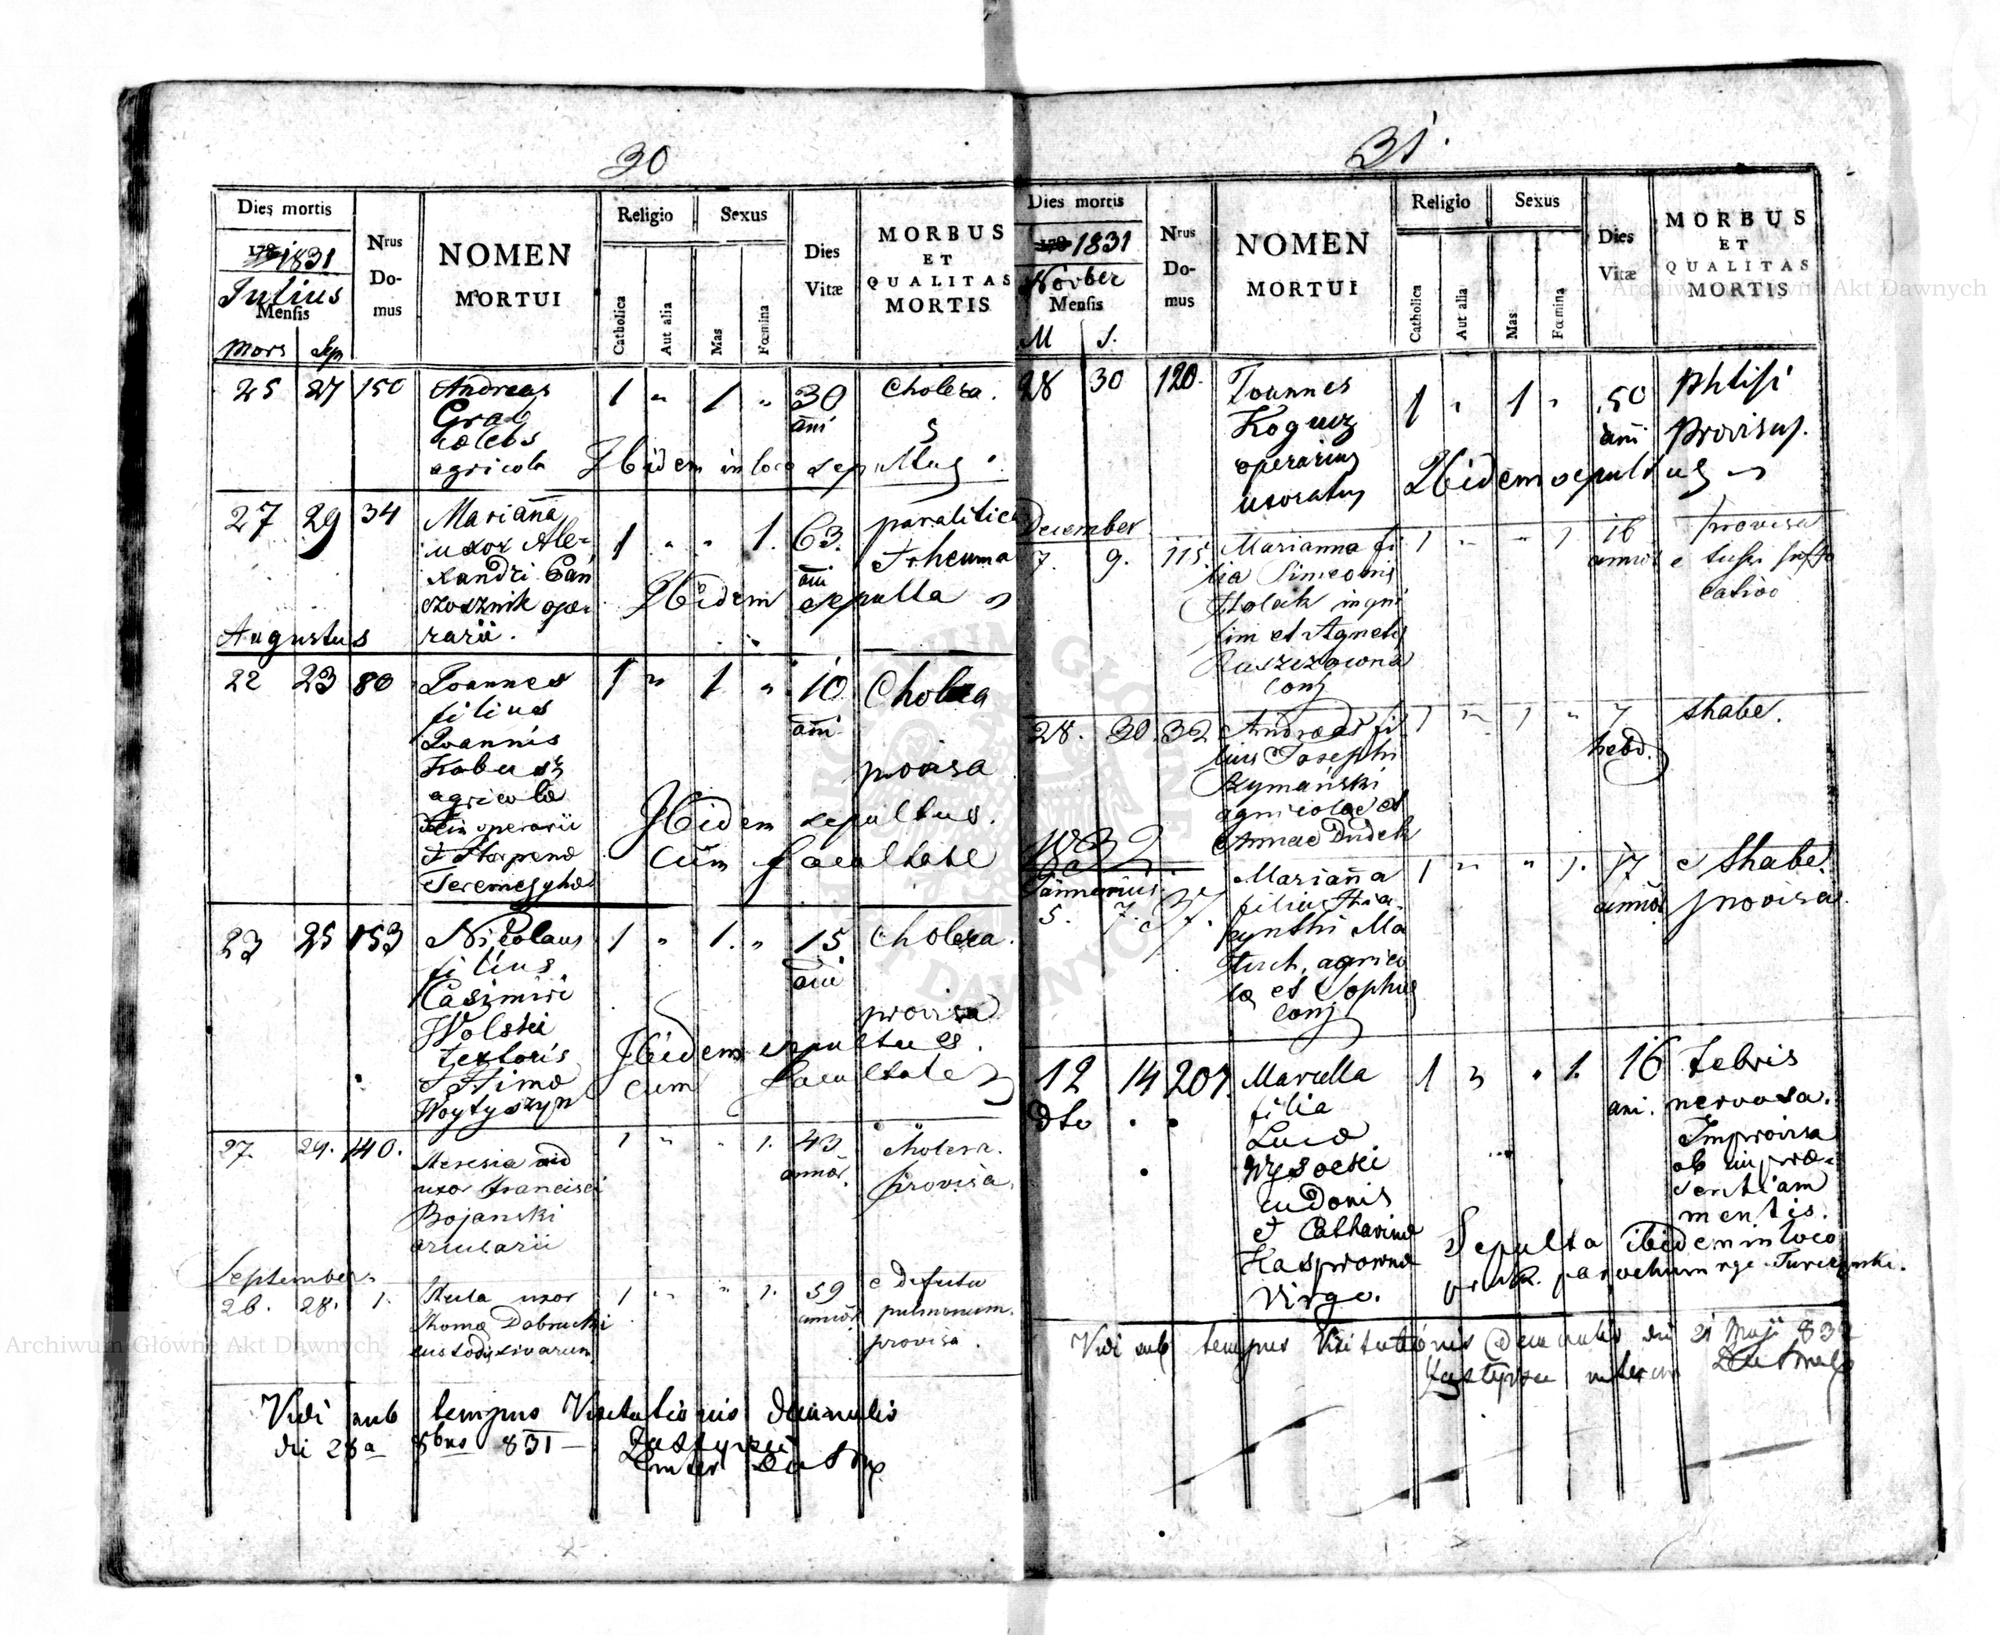 30
Dies mortis
Nrus Domus
NOMEN MORTUI
Religio
Sexus
Dies Vitæ
MORBUS ET QUALITAS MORTIS
178 1831
Julius
Mensis
Catholica
Aut alia
Mas
Fœmina
Mors Sep
25 27 150 Andreas 1 " 1 " 30 Cholera.
Grab ani
cælebs
agricola Ibidem in loco sepultus.
27 29 34 Marianna 1 " " 1. 63. paralitica
uxor Ale- ani et rheuma
xandri
Ibidem sepulta
rarii.
Augustus
22 23 80 Joannes 1 " 1 " 10 Cholera
filius ani
Joannis
provisa
agricolæ
Ibidem sepultus.
operarii
cum facultate
23 25 153 Nicolaus 1 " 1. " 15 Cholera.
filius ani
Casimiri
provisa
Wolski
textoris Ibidem sepultus.
cum facultate
Woytyszyn
27. 29. 140. Theresia 1 " " 1. 43 cholera.
uxor Francisci annor. provisa.
Bojanski
arcularii
September
26. 28. 1. Thecla uxor 1 " " 1. 59 e defectu
Thomæ annor. pulmonum.
provisa.
Vidi sub tempus Visitationis Decanalis
die 28a 8bris 831
31.
Dies mortis
Nrus Domus
NOMEN MORTUI
Religio
Sexus
Dies Vitæ
MORBUS ET QUALITAS MORTIS
178 1831
Novber
Mensis
Catholica
Aut alia
Mas
Fœmina
M S.
28 30 120. Joannes 1 " 1 " 50 phtisi
Kogucz ani provisus.
operarius
uxoratus Ibidem sepultus
December
7. 9. 115. Marianna fi 1 " " 1 16 provisa
lia Simeonis annor e tussi suffo
catioo
lini et Agnetis
conj
28. 30. 32 Andreas fi 1 " 1 " 7 Shabe.
lius Josephi hebd.
Szymański
agricolae et
Annae Dudek
1832
Januarius.
5. 7. 37. Marianna 1 " " 1. 17 e Shabe.
filia Hia- annor provisa.
cynthi Ma
agrico
læ et Sophiæ
conj
12 14 207. Marcella 1 " " 1. 16 febris
dto filia ani. nervosa.
Lucæ Improvisa
Wysocki ob impræ-
sentiam
et Catharinæ mentis.
Kasprowna Sepulta ibidem in loco
Virgo. parochum
Vidi sub tempus Visitationis Decanalis die 21 Maji 832
Archiwum Główne Akt Dawnych
Archiwum Główne Akt Dawnych
ARCHIWUM GŁÓWNE AKT DAWNYCH